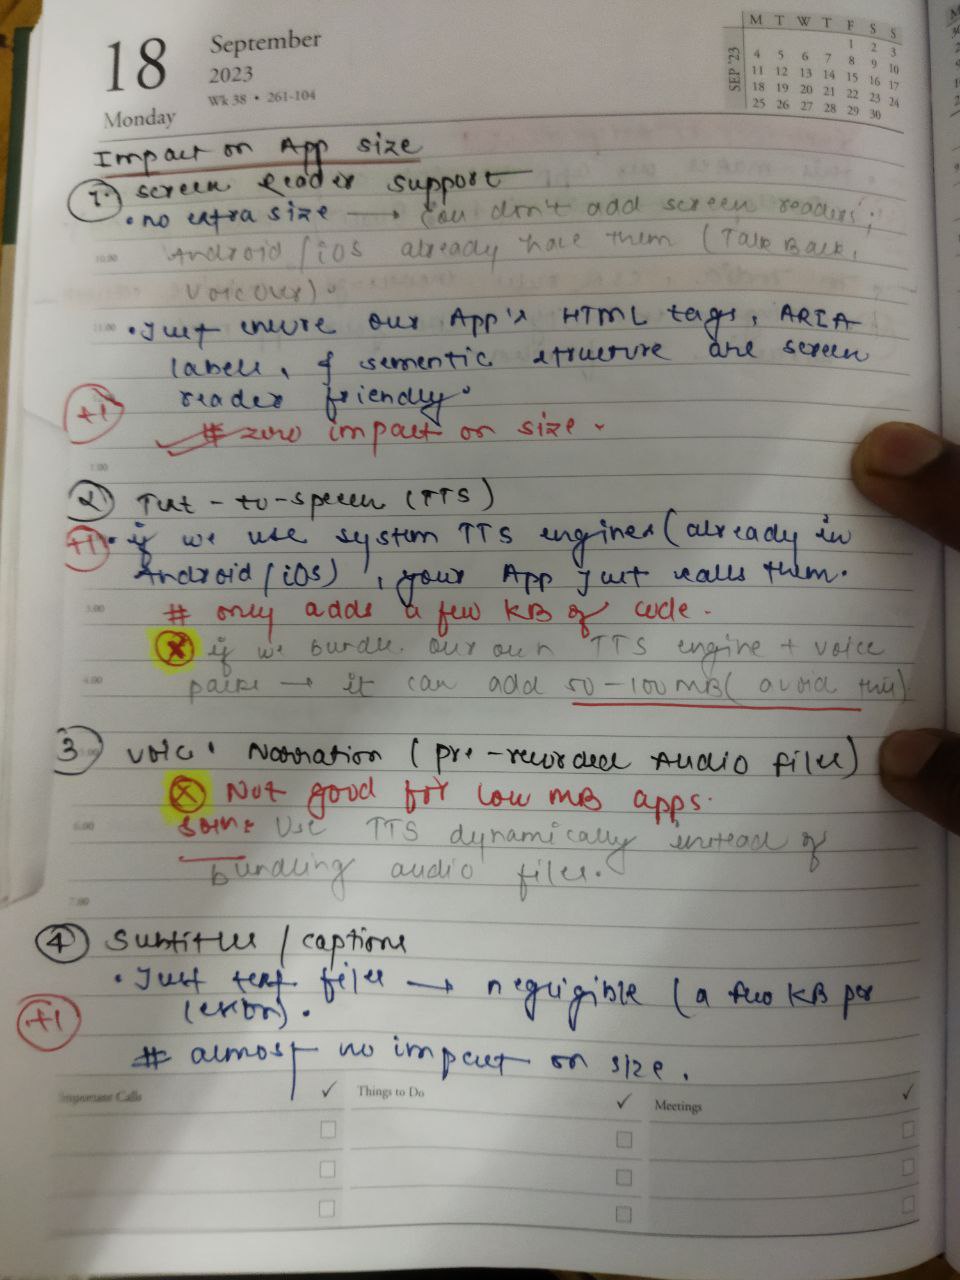 18
September
2023
Wk 38 • 261-104
Monday
SEP '23
M T W T F S S
1 2 3
4 5 6 7 8 9 10
11 12 13 14 15 16 17
18 19 20 21 22 23 24
25 26 27 28 29 30
Impact on App size
1. Screen Reader support
• no extra size → You don't add screen readers;
10.00 Android/iOS already have them (TalkBack,
VoiceOver).
11.00 • Just ensure our App's HTML tags, ARIA
labels, & sementic structure are screen
reader friendly.
+1
# zero impact on size.
1.00
2) Text-to-speech (TTS)
+1 • if we use system TTS engines (already in
Android/iOS), your App just calls them.
3.00 # only adds a few KB of code.
x if we bundle our own TTS engine + voice
4.00 packs → it can add 50-100MB (avoid this)
3) Voice Narration (pre-recorded Audio files)
x Not good for low MB apps.
6.00 Soln: Use TTS dynamically instead of
bundling audio files.
7.00
4) Subtitles / captions
• Just text files → negligible (a few KB per
lesson).
+1
# almost no impact on size.
Important Calls ✓ Things to Do ✓ Meetings ✓